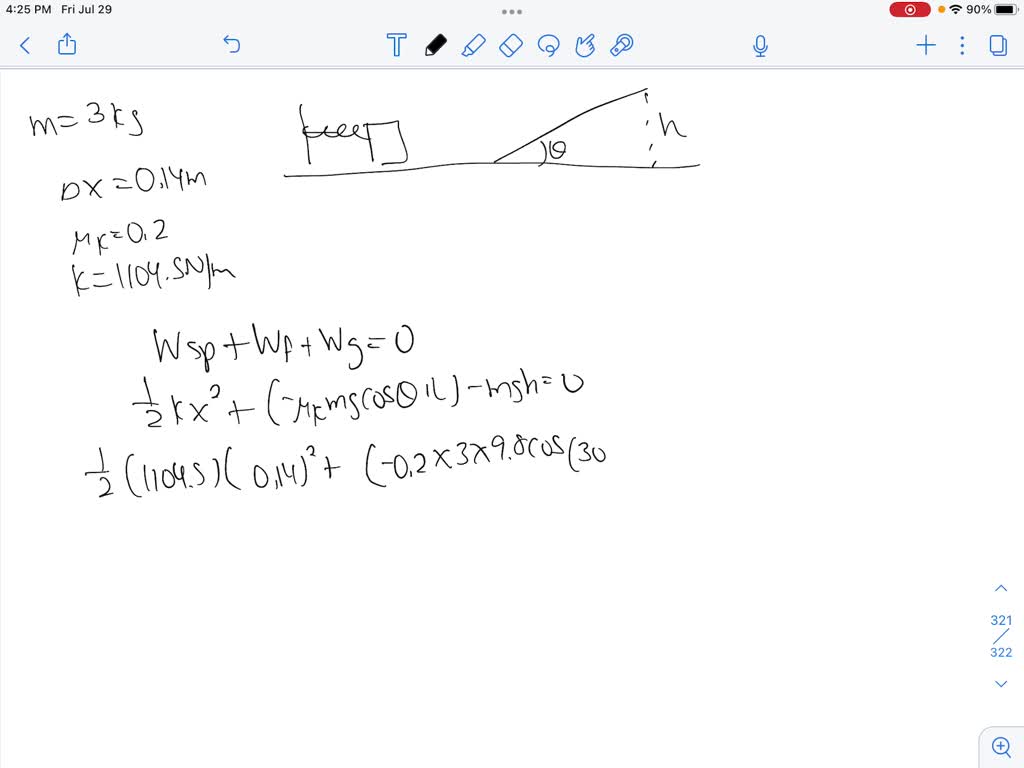 4:25 PM Fri Jul 29
90%
T
m=3kg
h
θ
Δx=0.14m
μk=0.2
k=1104.5N/m
Wsp+Wf+Wg=0
1/2 kx²+(-μkmgcosθ.L)-mgh=0
1/2 (1104.5)(0.14)²+(-0.2×3×9.8cos(30
321
322